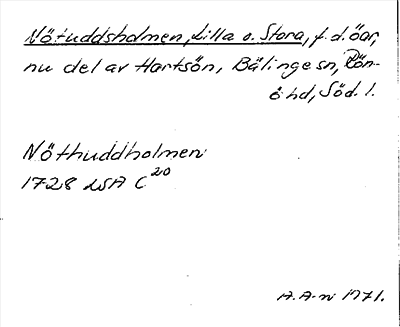 Nötuddsholmen, Lilla o. Stora, f.d. öar,
nu del av Hartsön, Bälinge sn, Rön-
ö hd, Söd. l.
Nöthuddholmen
1728 LSA C 20
A. A-n 1971.